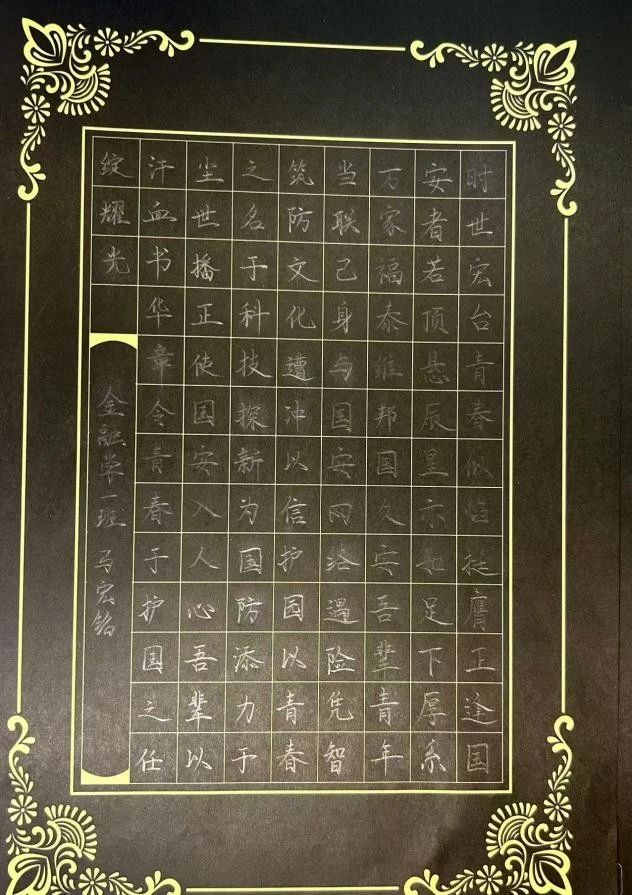 时世宏台青春似临挺膺正逢国
安者若顶悬辰星亦如足下厚系
万家福泰维邦国久安吾辈青年
当联己身与国安网络遇险凭智
筑防文化遭冲以信护国以青春
之名于科技探新为国防添力于
尘世播正使国安入人心吾辈以
汗血书华章令青春于护国之任
绽耀光
金融学一班 马宏铭